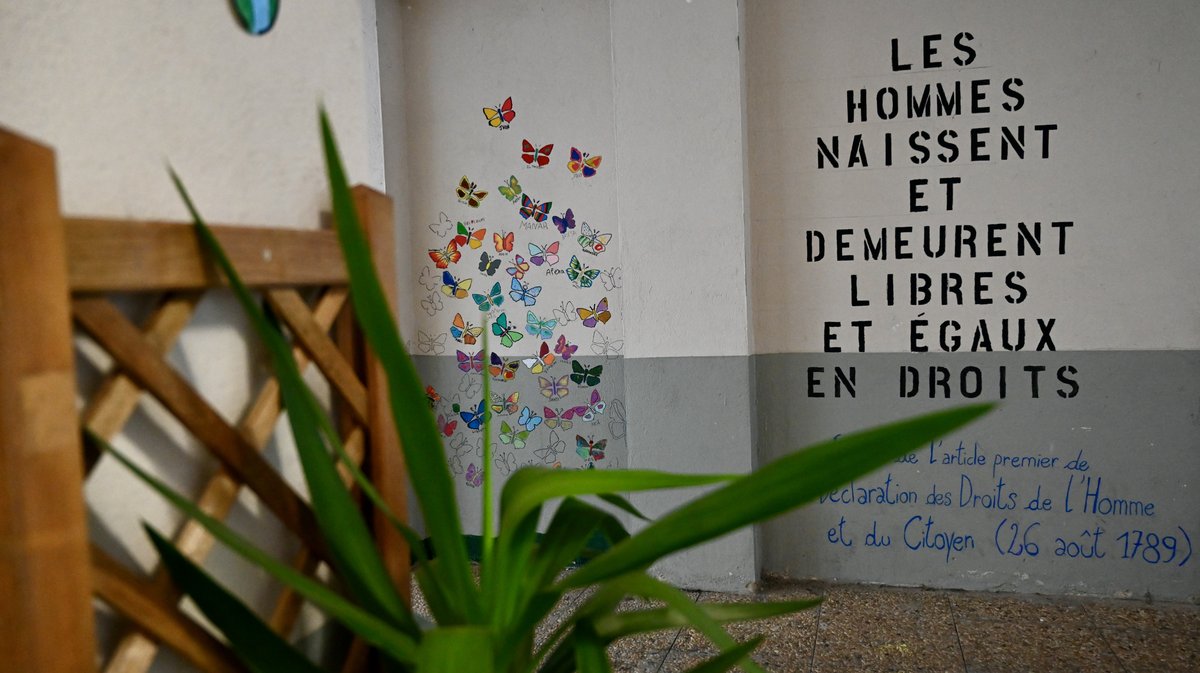 LES
HOMMES
NAISSENT
ET
DEMEURENT
LIBRES
ET ÉGAUX
EN DROITS
l'article premier de
Déclaration des Droits de l'Homme
et du Citoyen (26 août 1789)
MANAR